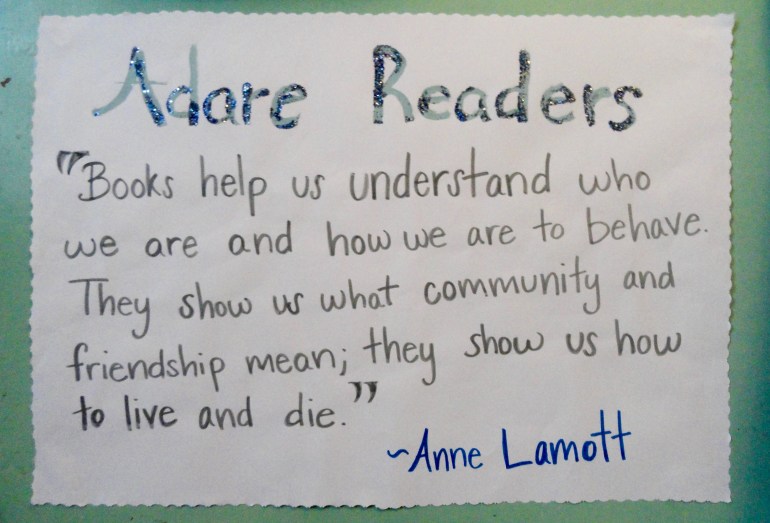 Adare Readers
"Books help us understand who
we are and how we are to behave.
They show us what community and
friendship mean; they show us how
to live and die."
~Anne Lamott